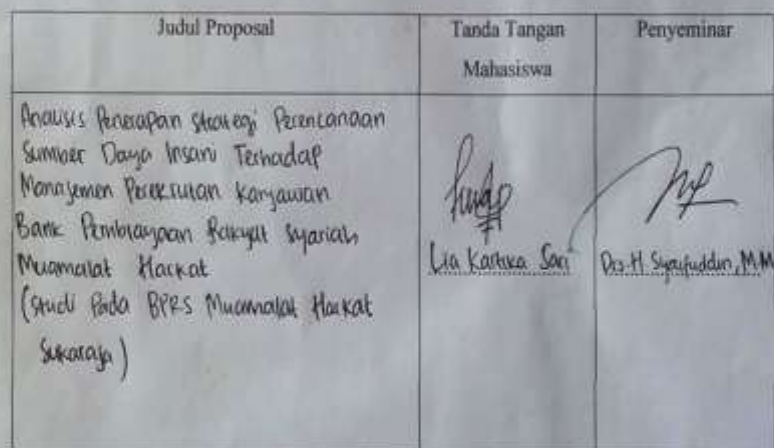 Judul Proposal
Tanda Tangan
Mahasiswa
Penyeminar
Analisis Penerapan Strategi Perencanaan
Sumber Daya Insani Terhadap
Manajemen Perekrutan Karyawan
Bank Pembiayaan Rakyat Syariah
Muamalat Harkat
(Studi Pada BPRS Muamalat Harkat
Sukaraja)
Lia Kartika Sari
Drs. H. Syaifuddin, MM